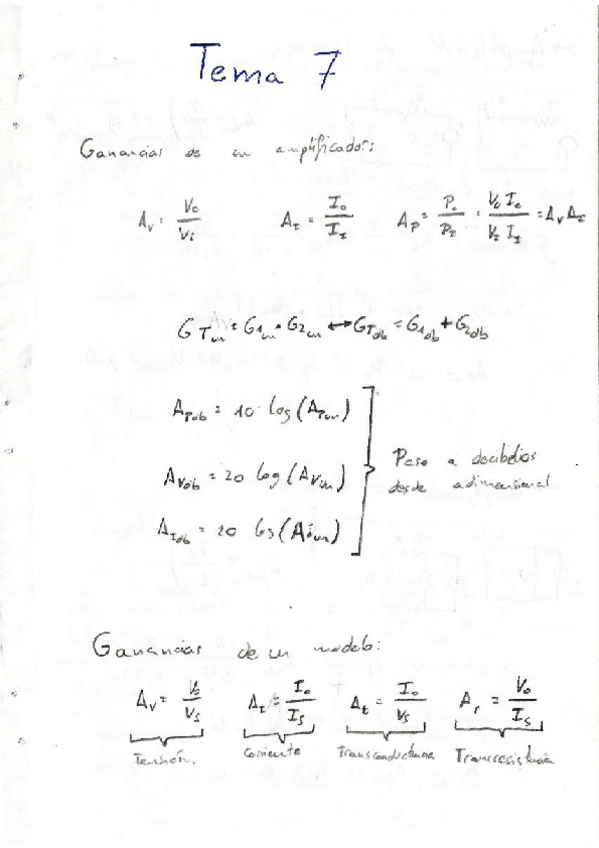 Tema 7
Ganancias de un amplificador:
A_V = V_o / V_i   A_I = I_o / I_I   A_P = P_o / P_I = V_o I_o / V_I I_I = A_V A_I
G_Tun = G1_un · G2_un ↔ G_Tdb = G1_db + G2_db
A_Pdb = 10 · log (A_Pun)
A_Vdb = 20 log (A_Vun)
A_Idb = 20 log (A_iun)
Paso a decibelios
desde adimensional
Ganancias de un modelo:
A_V = V_o / V_S   A_I = I_o / I_S   A_t = I_o / V_S   A_r = V_o / I_S
Tensión.   Corriente   Transconductancia   Transresistencia